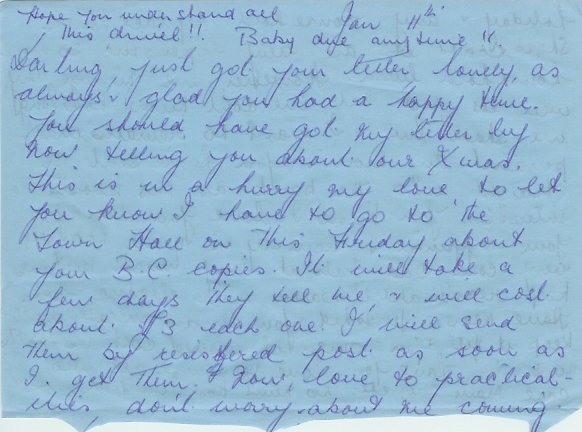 Hope you understand all Jan 11th
This drivel!! Baby due anytime!!
Darling just got your letter lovely as
always & glad you had a happy time.
You should have got my letter by
now telling you about our Xmas.
This is in a hurry my love to let
you know I have to go to the
Town Hall on This Friday about
your B.C. copies. It will take a
few days They tell me & will cost
about £3 each one I will send
Them by registered post as soon as
I get Them. & Now, love to practical-
ities, don't worry about me coming